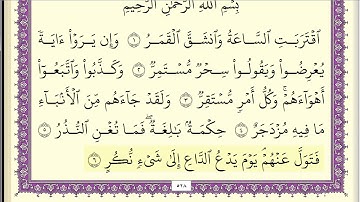 بِسْمِ ٱللَّهِ ٱلرَّحْمَٰنِ ٱلرَّحِيمِ
ٱقْتَرَبَتِ ٱلسَّاعَةُ وَٱنشَقَّ ٱلْقَمَرُ ۝١ وَإِن يَرَوْا۟ ءَايَةً
يُعْرِضُوا۟ وَيَقُولُوا۟ سِحْرٌ مُّسْتَمِرٌّ ۝٢ وَكَذَّبُوا۟ وَٱتَّبَعُوٓا۟
أَهْوَآءَهُمْ ۚ وَكُلُّ أَمْرٍ مُّسْتَقِرٌّ ۝٣ وَلَقَدْ جَآءَهُم مِّنَ ٱلْأَنۢبَآءِ
مَا فِيهِ مُزْدَجَرٌ ۝٤ حِكْمَةٌۢ بَٰلِغَةٌ ۖ فَمَا تُغْنِ ٱلنُّذُرُ ۝٥
فَتَوَلَّ عَنْهُمْ ۘ يَوْمَ يَدْعُ ٱلدَّاعِ إِلَىٰ شَىْءٍ نُّكُرٍ ۝٦
٥٢٨